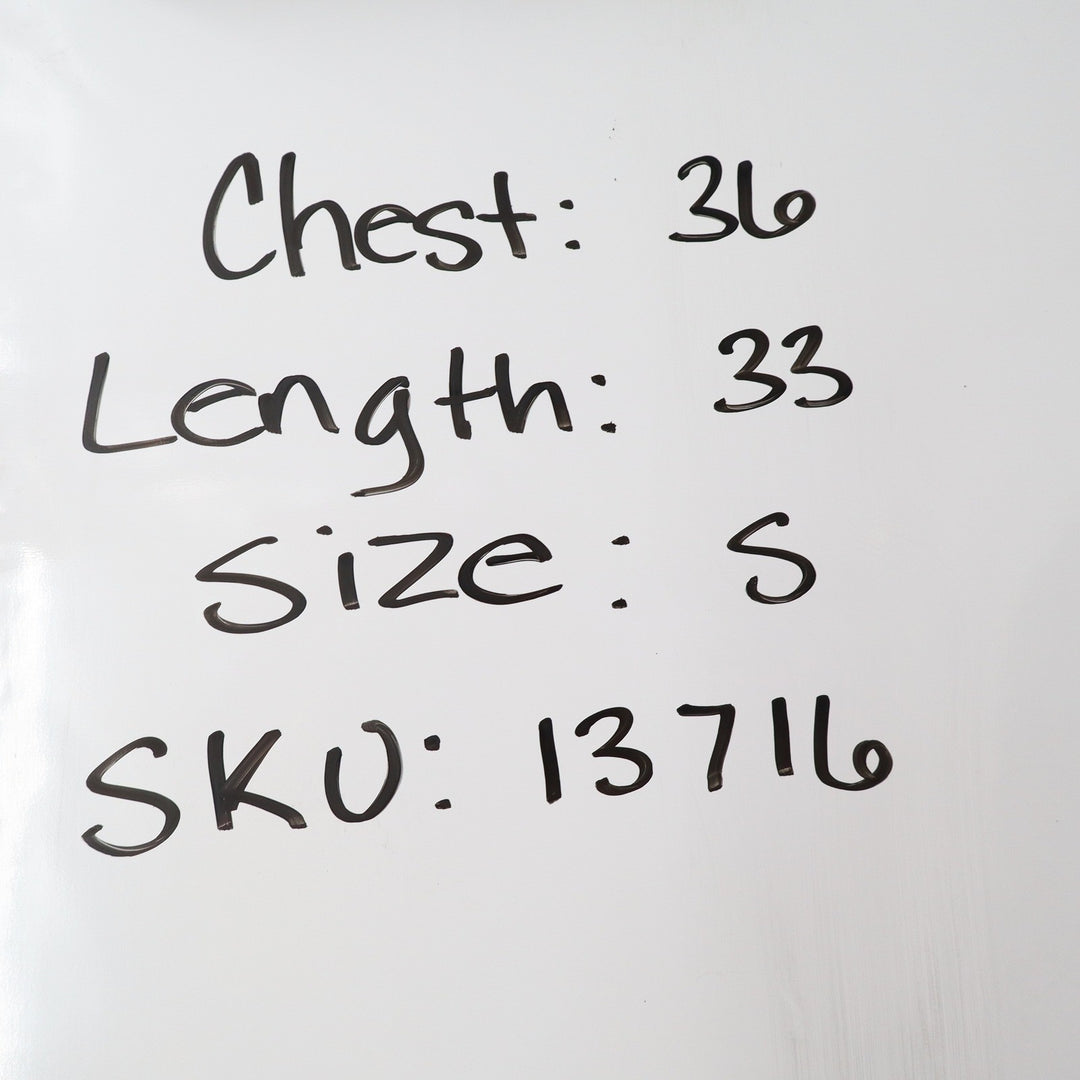 Chest: 36
Length: 33
Size: S
SKU: 13716